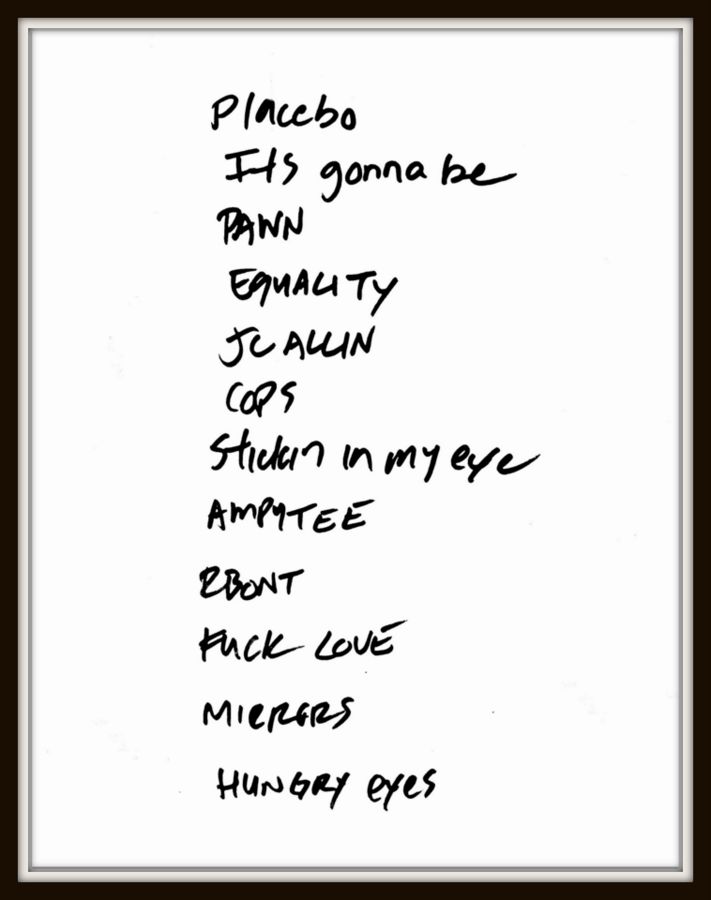 Placebo
Its gonna be
PAWN
EQUALITY
JC ALLIN
COPS
Stickin in my eye
AMPYTEE
2BONT
FUCK LOVE
MIRRERS
HUNGRY eyes